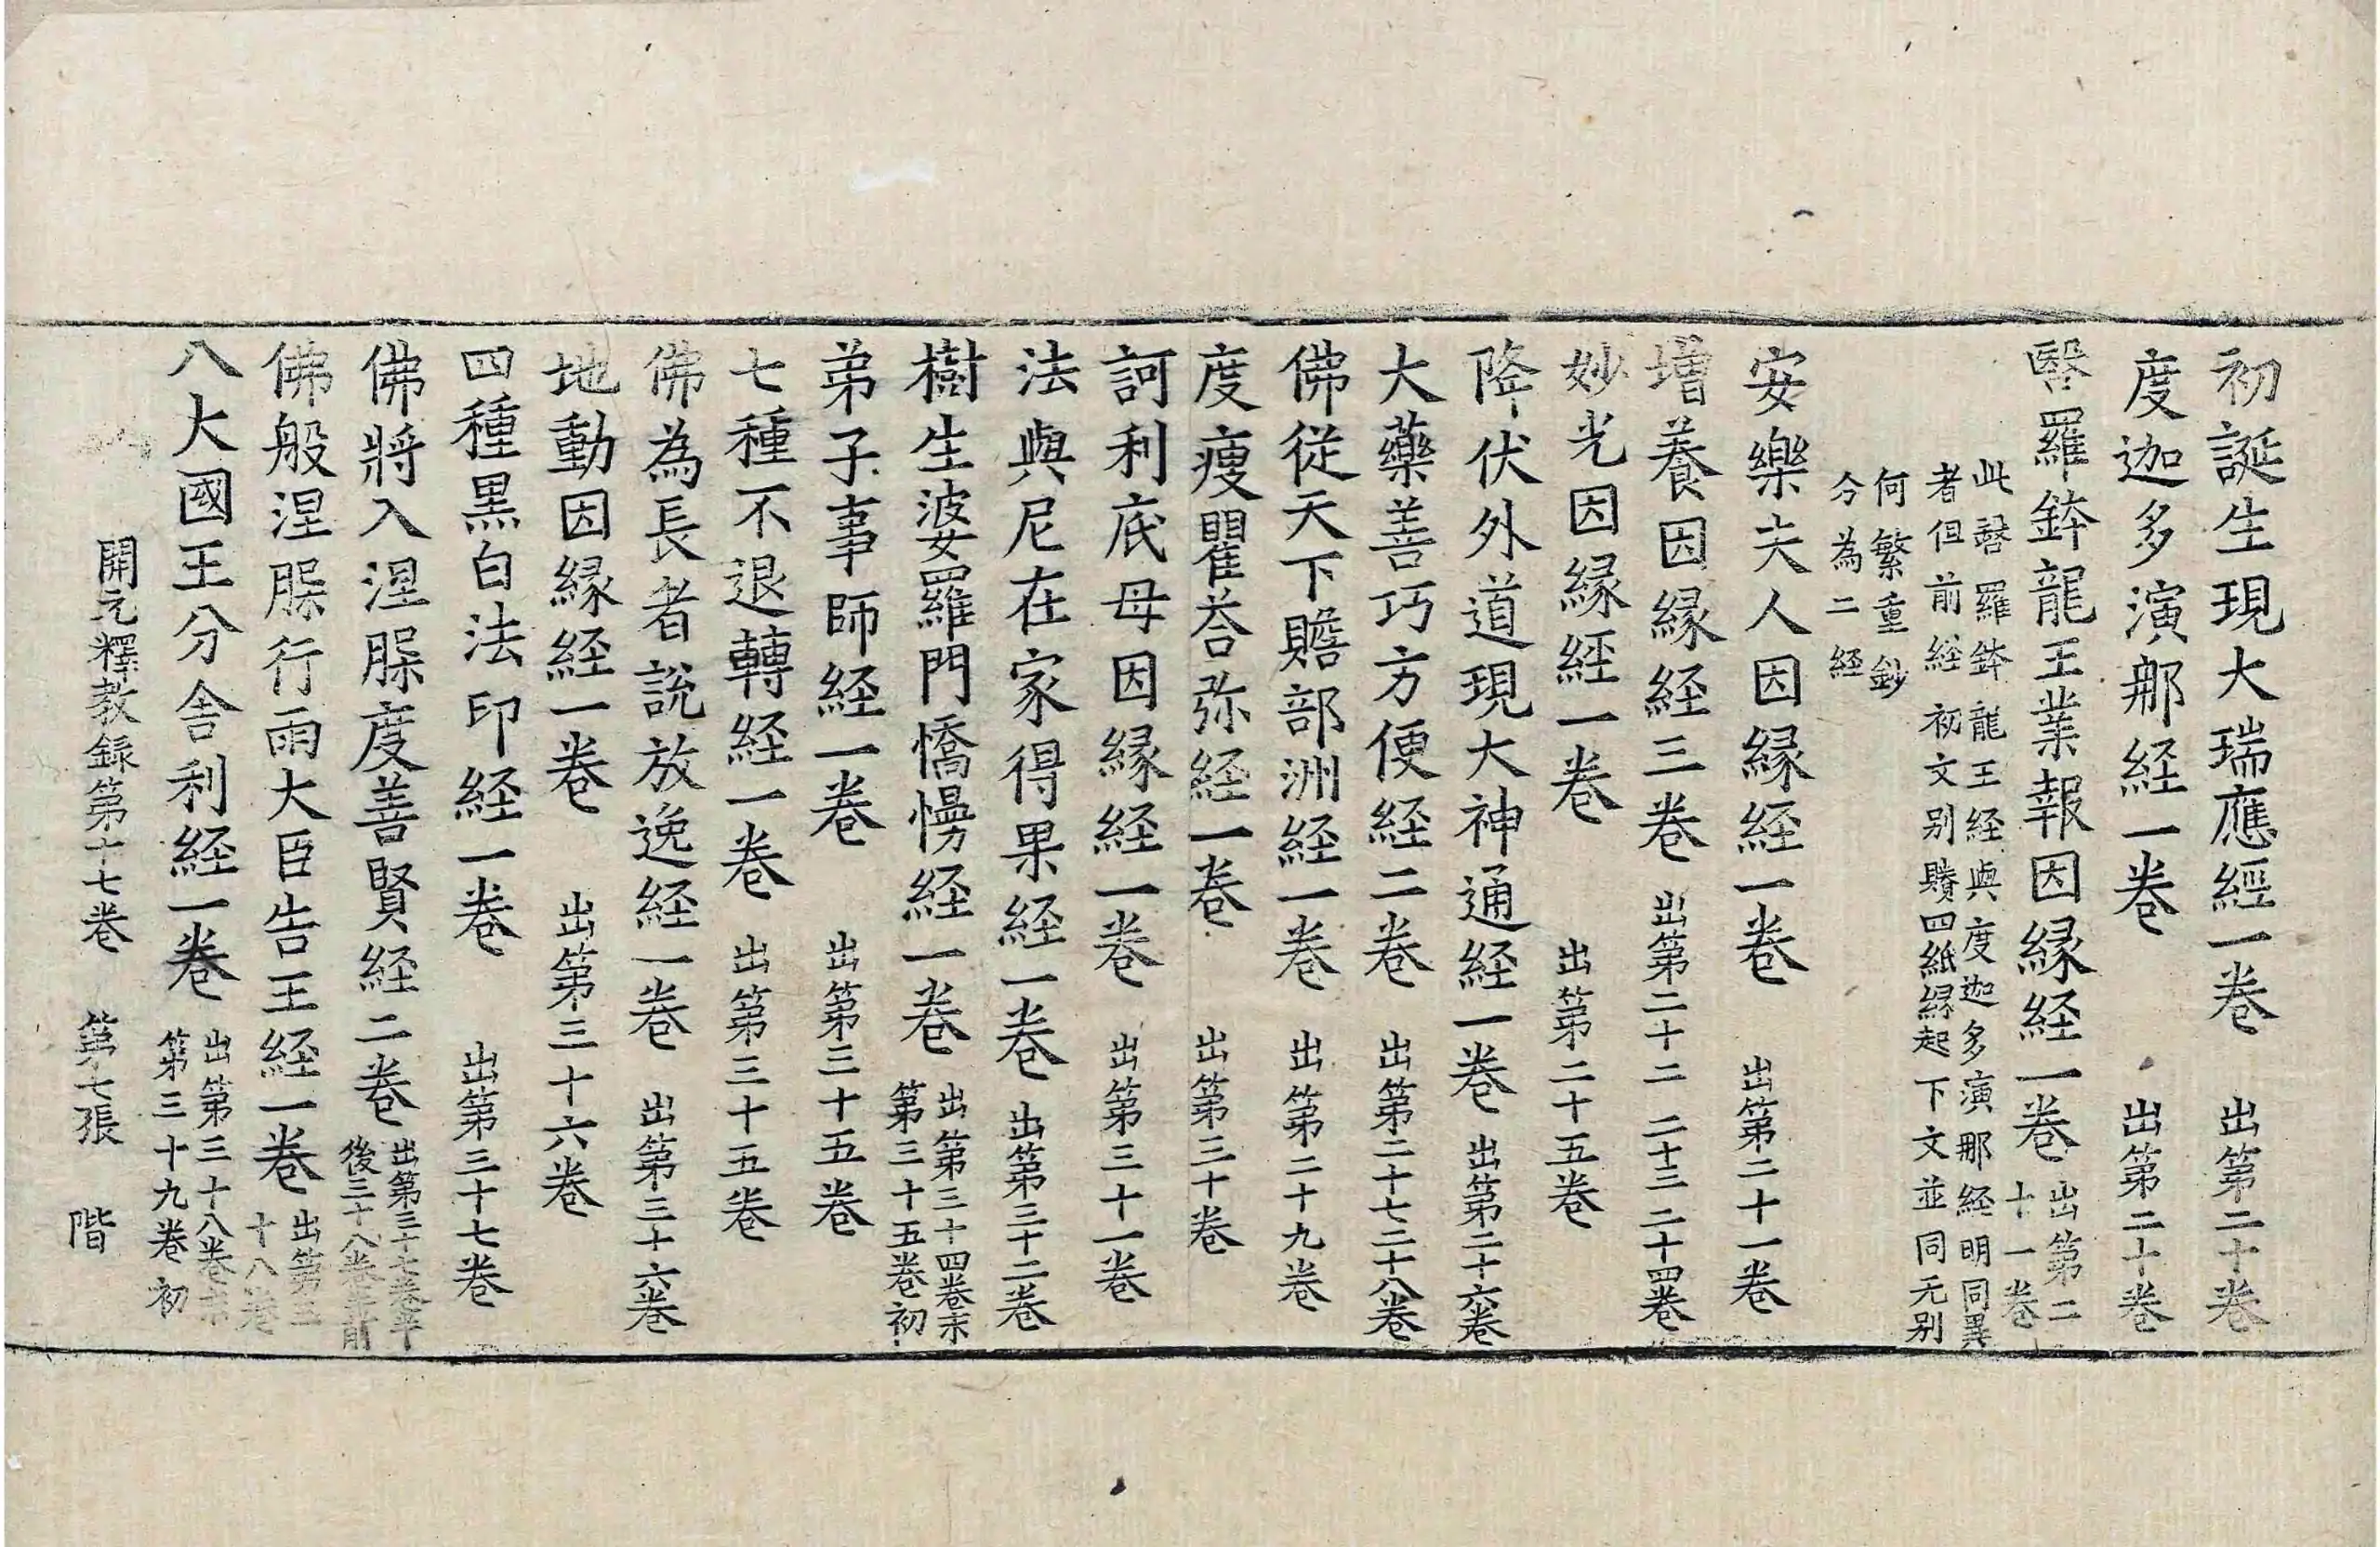 初誕生現大瑞應經一卷 出第二十卷
度迦多演那経一卷 出第二十卷
醫羅鉢龍王業報因縁経一卷 出第二
十一卷
此醫羅鉢龍王経與度迦多演那経明同異
者但前経初文别賸四紙縁起下文並同无别
何繁重鈔
今為二経
安樂夫人因縁経一卷 出第二十一卷
增養因縁経三卷 出第二十二 二十三 二十四卷
妙光因縁經一卷 出第二十五卷
降伏外道現大神通経一卷 出第二十六卷
大藥善巧方便経二卷 出第二十七二十八卷
佛從天下贍部洲経一卷 出第二十九卷
度瘦瞿荅弥経一卷 出第三十卷
訶利底母因縁経一卷 出第三十一卷
法與尼在家得果経一卷 出第三十二卷
樹生婆羅門憍慢経一卷 出第三十四卷末
第三十五卷初
弟子事師経一卷 出第三十五卷
七種不退轉経一卷 出第三十五卷
佛為長者說放逸経一卷 出第三十六卷
地動因縁経一卷 出第三十六卷
四種黑白法印経一卷 出第三十七卷
佛將入涅槃度善賢経二卷 出第三十七卷半
後三十八卷半前
佛般涅槃行雨大臣告王経一卷 出第三
十八卷
八大國王分舍利経一卷 出第三十八卷末
第三十九卷初
開元釋教録第十七卷 第七張 階